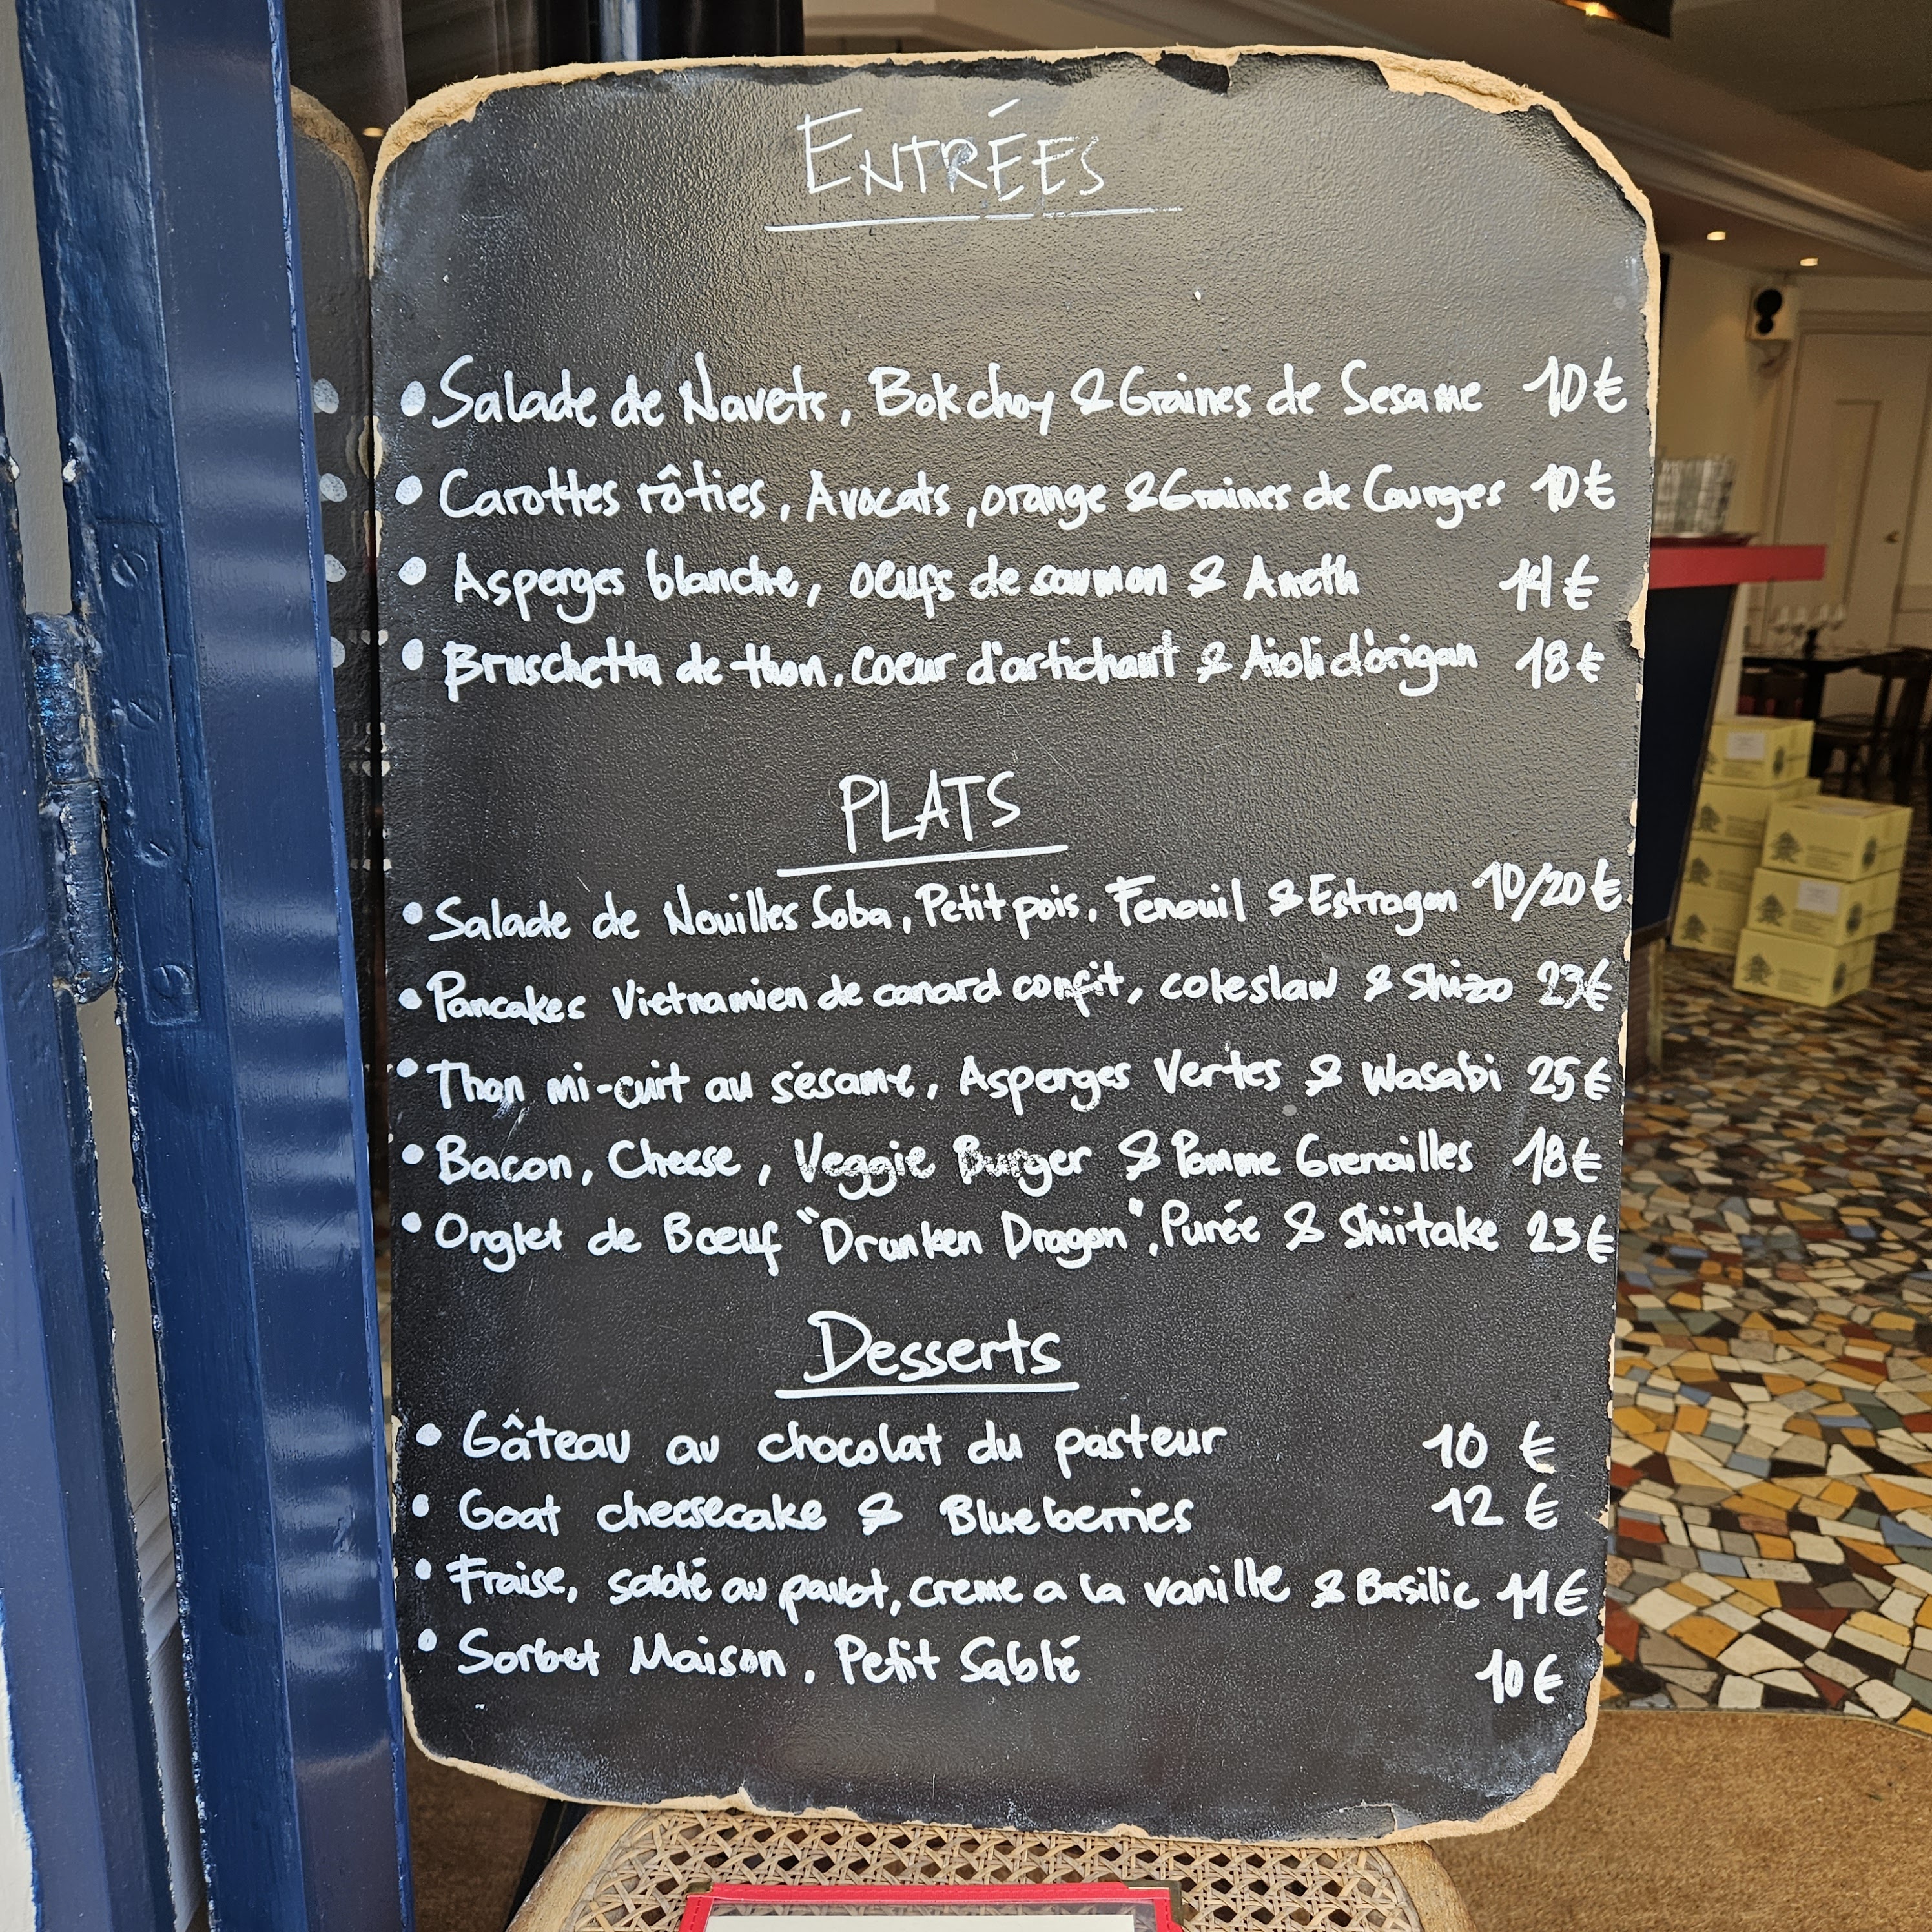 ENTRÉES
• Salade de Navets, Bok choy & Graines de Sesame 10€
• Carottes rôties, Avocats, orange & Graines de Courges 10€
• Asperges blanche, oeufs de saumon & Aneth 14€
• Bruschetta de thon, coeur d'artichaut & Aioli d'origan 18€
PLATS
• Salade de Nouilles Soba, Petit pois, Fenouil & Estragon 10/20€
• Pancakes Vietnamien de canard confit, coleslaw & Shizo 23€
• Thon mi-cuit au sésame, Asperges Vertes & Wasabi 25€
• Bacon, Cheese, Veggie Burger & Pomme Grenailles 18€
• Onglet de Bœuf "Drunken Dragon", Purée & Shiitake 23€
Desserts
• Gâteau au chocolat du pasteur 10 €
• Goat cheesecake & Blueberries 12 €
• Fraise, sablé au pavot, creme a la vanille & Basilic 11€
• Sorbet Maison, Petit Sablé 10€